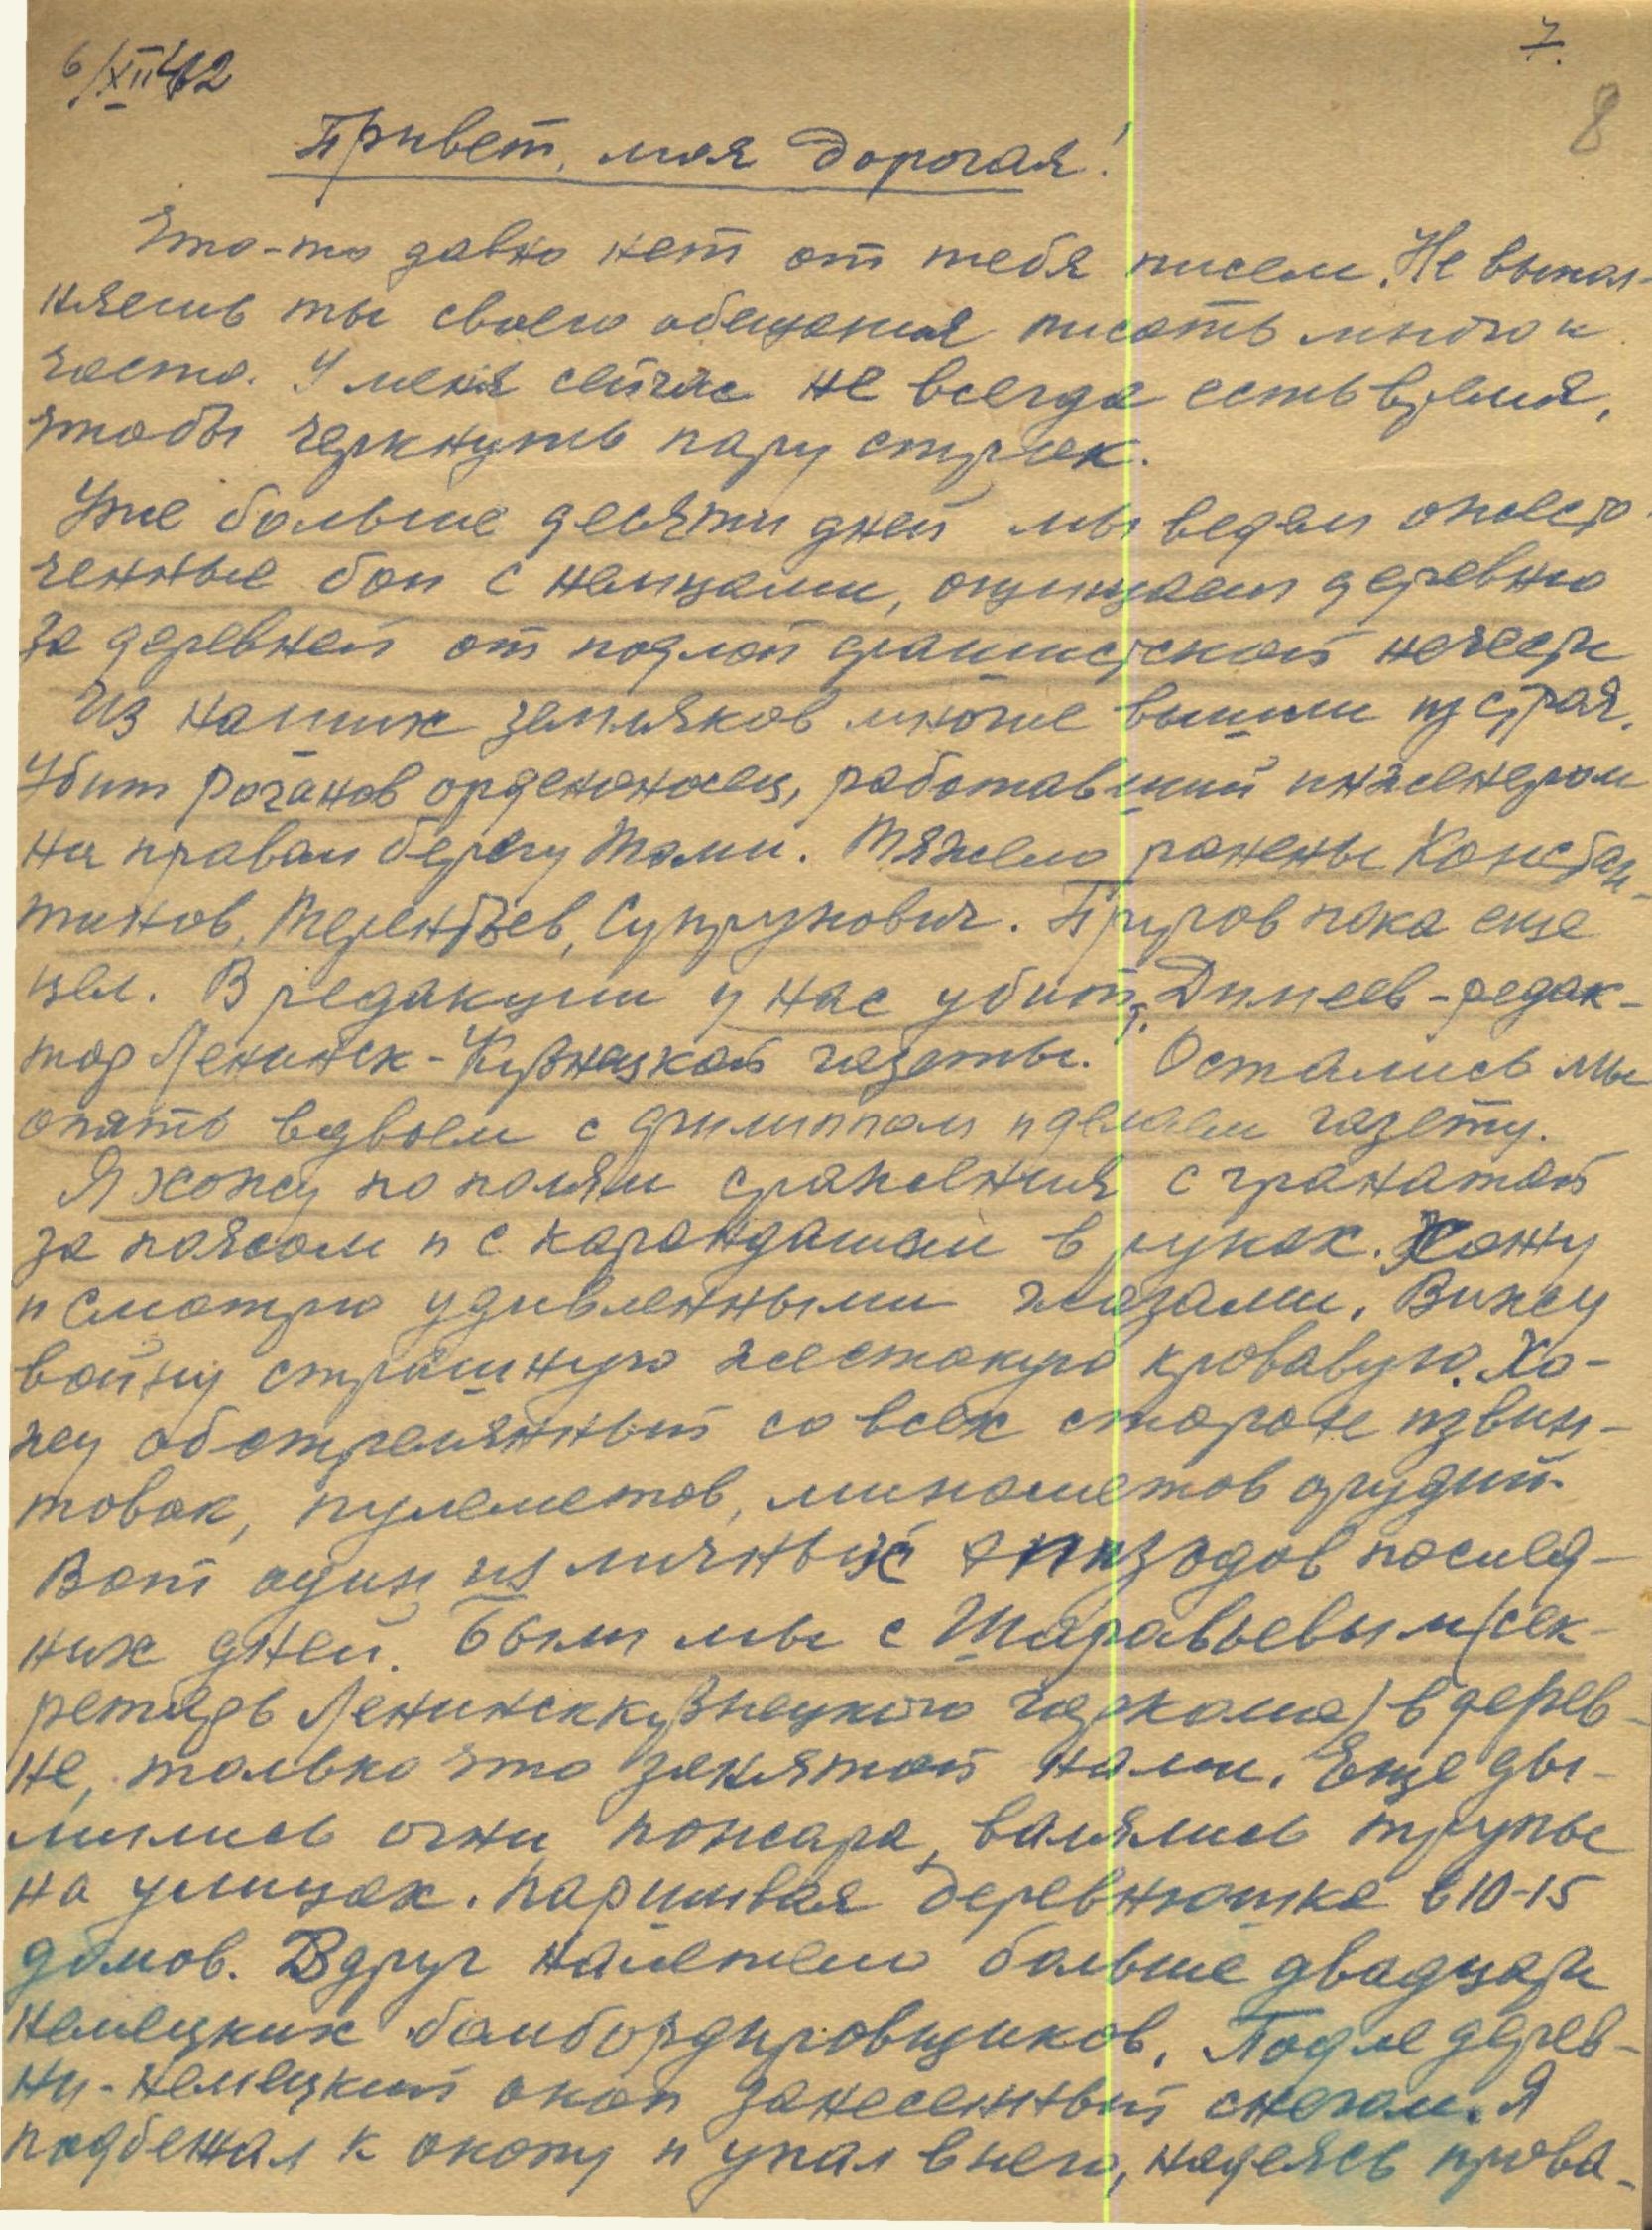 7.
6/XII 42
8
Привет, моя дорогая!
Что-то давно нет от тебя писем. Не выпол-
няешь ты своего обещания писать много и
часто. У меня сейчас не всегда есть время,
чтобы черкнуть пару строк.
Уже больше десяти дней мы ведем ожесто-
ченные бои с немцами, очищаем деревню
за деревней от подлой фашистской нечести
Из наших земляков многие вышли из строя.
Убит Роганов орденоносец, работавший инженером
на правом берегу Томи. Тяжело ранены Констан-
тинов, Терентьев, Супрунович. Пока еще
цел. В редакции у нас убит Димеев - редак-
тор Ленинск-Кузнецкой газеты. Остались мы
опять вдвоем с Филиппом и делаем газету.
Я хожу по полям сражения с гранатой
за поясом и с карандашом в руках. Хожу
и смотрю удивленными глазами. Вижу
войну страшную жестокую кровавую. Хо-
жу обстрелянный со всех сторон из вин-
товок, пулеметов, минометов орудий.
Вот один из личных эпизодов послед-
них дней. Были мы с Шаравьевым (сек-
ретарь Ленинсккузнецкого горкома) в дерев-
не, только что занятой нами. Еще ды-
мились огни пожара, валялись трупы
на улицах. Паршивая деревнюшка в 10-15
домов. Вдруг налетело больше двадцати
немецких бомбордировщиков. Подле дерев-
ни - немецкий окоп занесенный снегом. Я
подбежал к окопу и упал в него, надеясь прова-